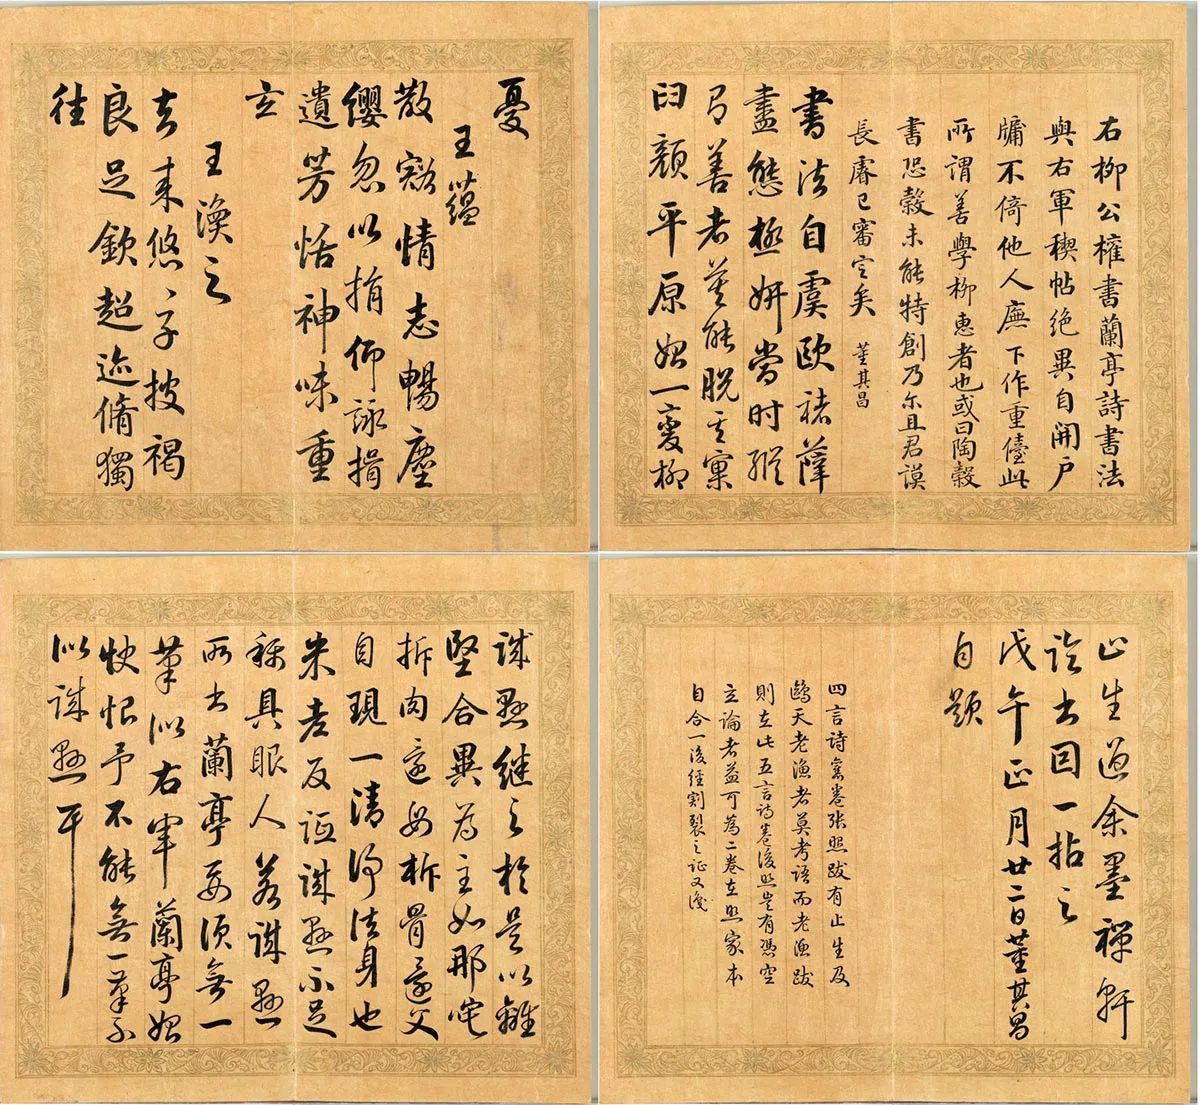 憂
王蘊
散豁情志暢塵
纓忽以捐仰詠挹
遺芳恬神味重
玄
王渙之
去來悠々子披褐
良足欽超迹脩獨
往
右柳公權書蘭亭詩書法
與右軍稧帖絕異自開戶
牖不倚他人廡下作重儓此
所謂善學柳惠者也或曰陶穀
書恐穀未能特創乃尔且君謨
長睿已審定矣 董其昌
書法自虞歐褚薛
盡態極妍當時縱
有善者莫能脫其窠
臼顏平原始一變柳
誠懸繼之於是以離
堅合異為主如那吒
拆肉還母析骨還父
自現一清淨法身也
米老反詆誠懸不足
稱具眼人若誠懸
所書蘭亭要須無一
筆似右軍蘭亭始
快恨予不能無一筆不
似誠懸耳
止生過余墨禪軒
論書因一拈之
戊午正月廿二日董其昌
自題
四言詩舊卷張照跋有止生及
鷗天老漁者莫考語而老漁跋
則在此五言詩卷後照豈有憑空
立論者益可為二卷在照家本
自合一後經割裂之證又識